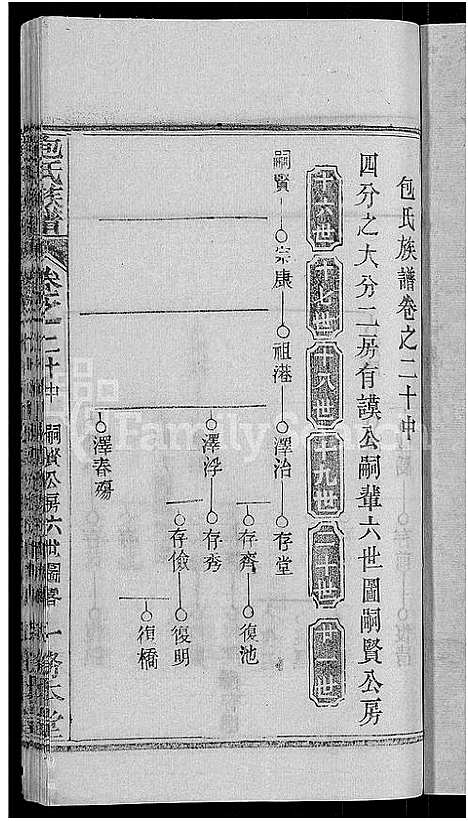 包氏族譜卷之二十中
四分之大分二房有謨公嗣輩六世圖嗣賢公房
十六世
十七世
十八世
十九世
二十世
廿一世
嗣賢
宗康
祖港
澤治
存堂
存齊
復池
澤浮
存秀
存儉
復明
復橋
澤春殤
包氏族譜
卷之二十中
嗣賢公房六世圖畧
一
FamilySearch